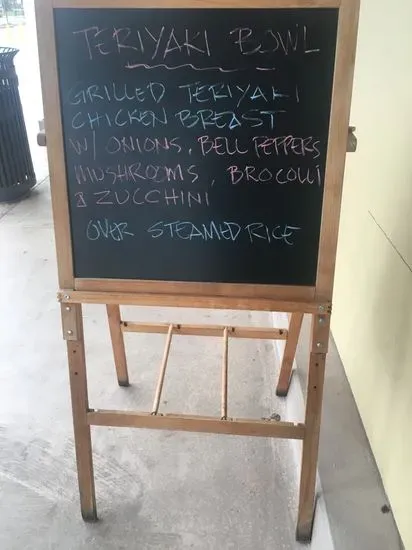 TERIYAKI BOWL
GRILLED TERIYAKI
CHICKEN BREAST
W/ ONIONS, BELL PEPPERS
MUSHROOMS, BROCOLLI
& ZUCCHINI
OVER STEAMED RICE